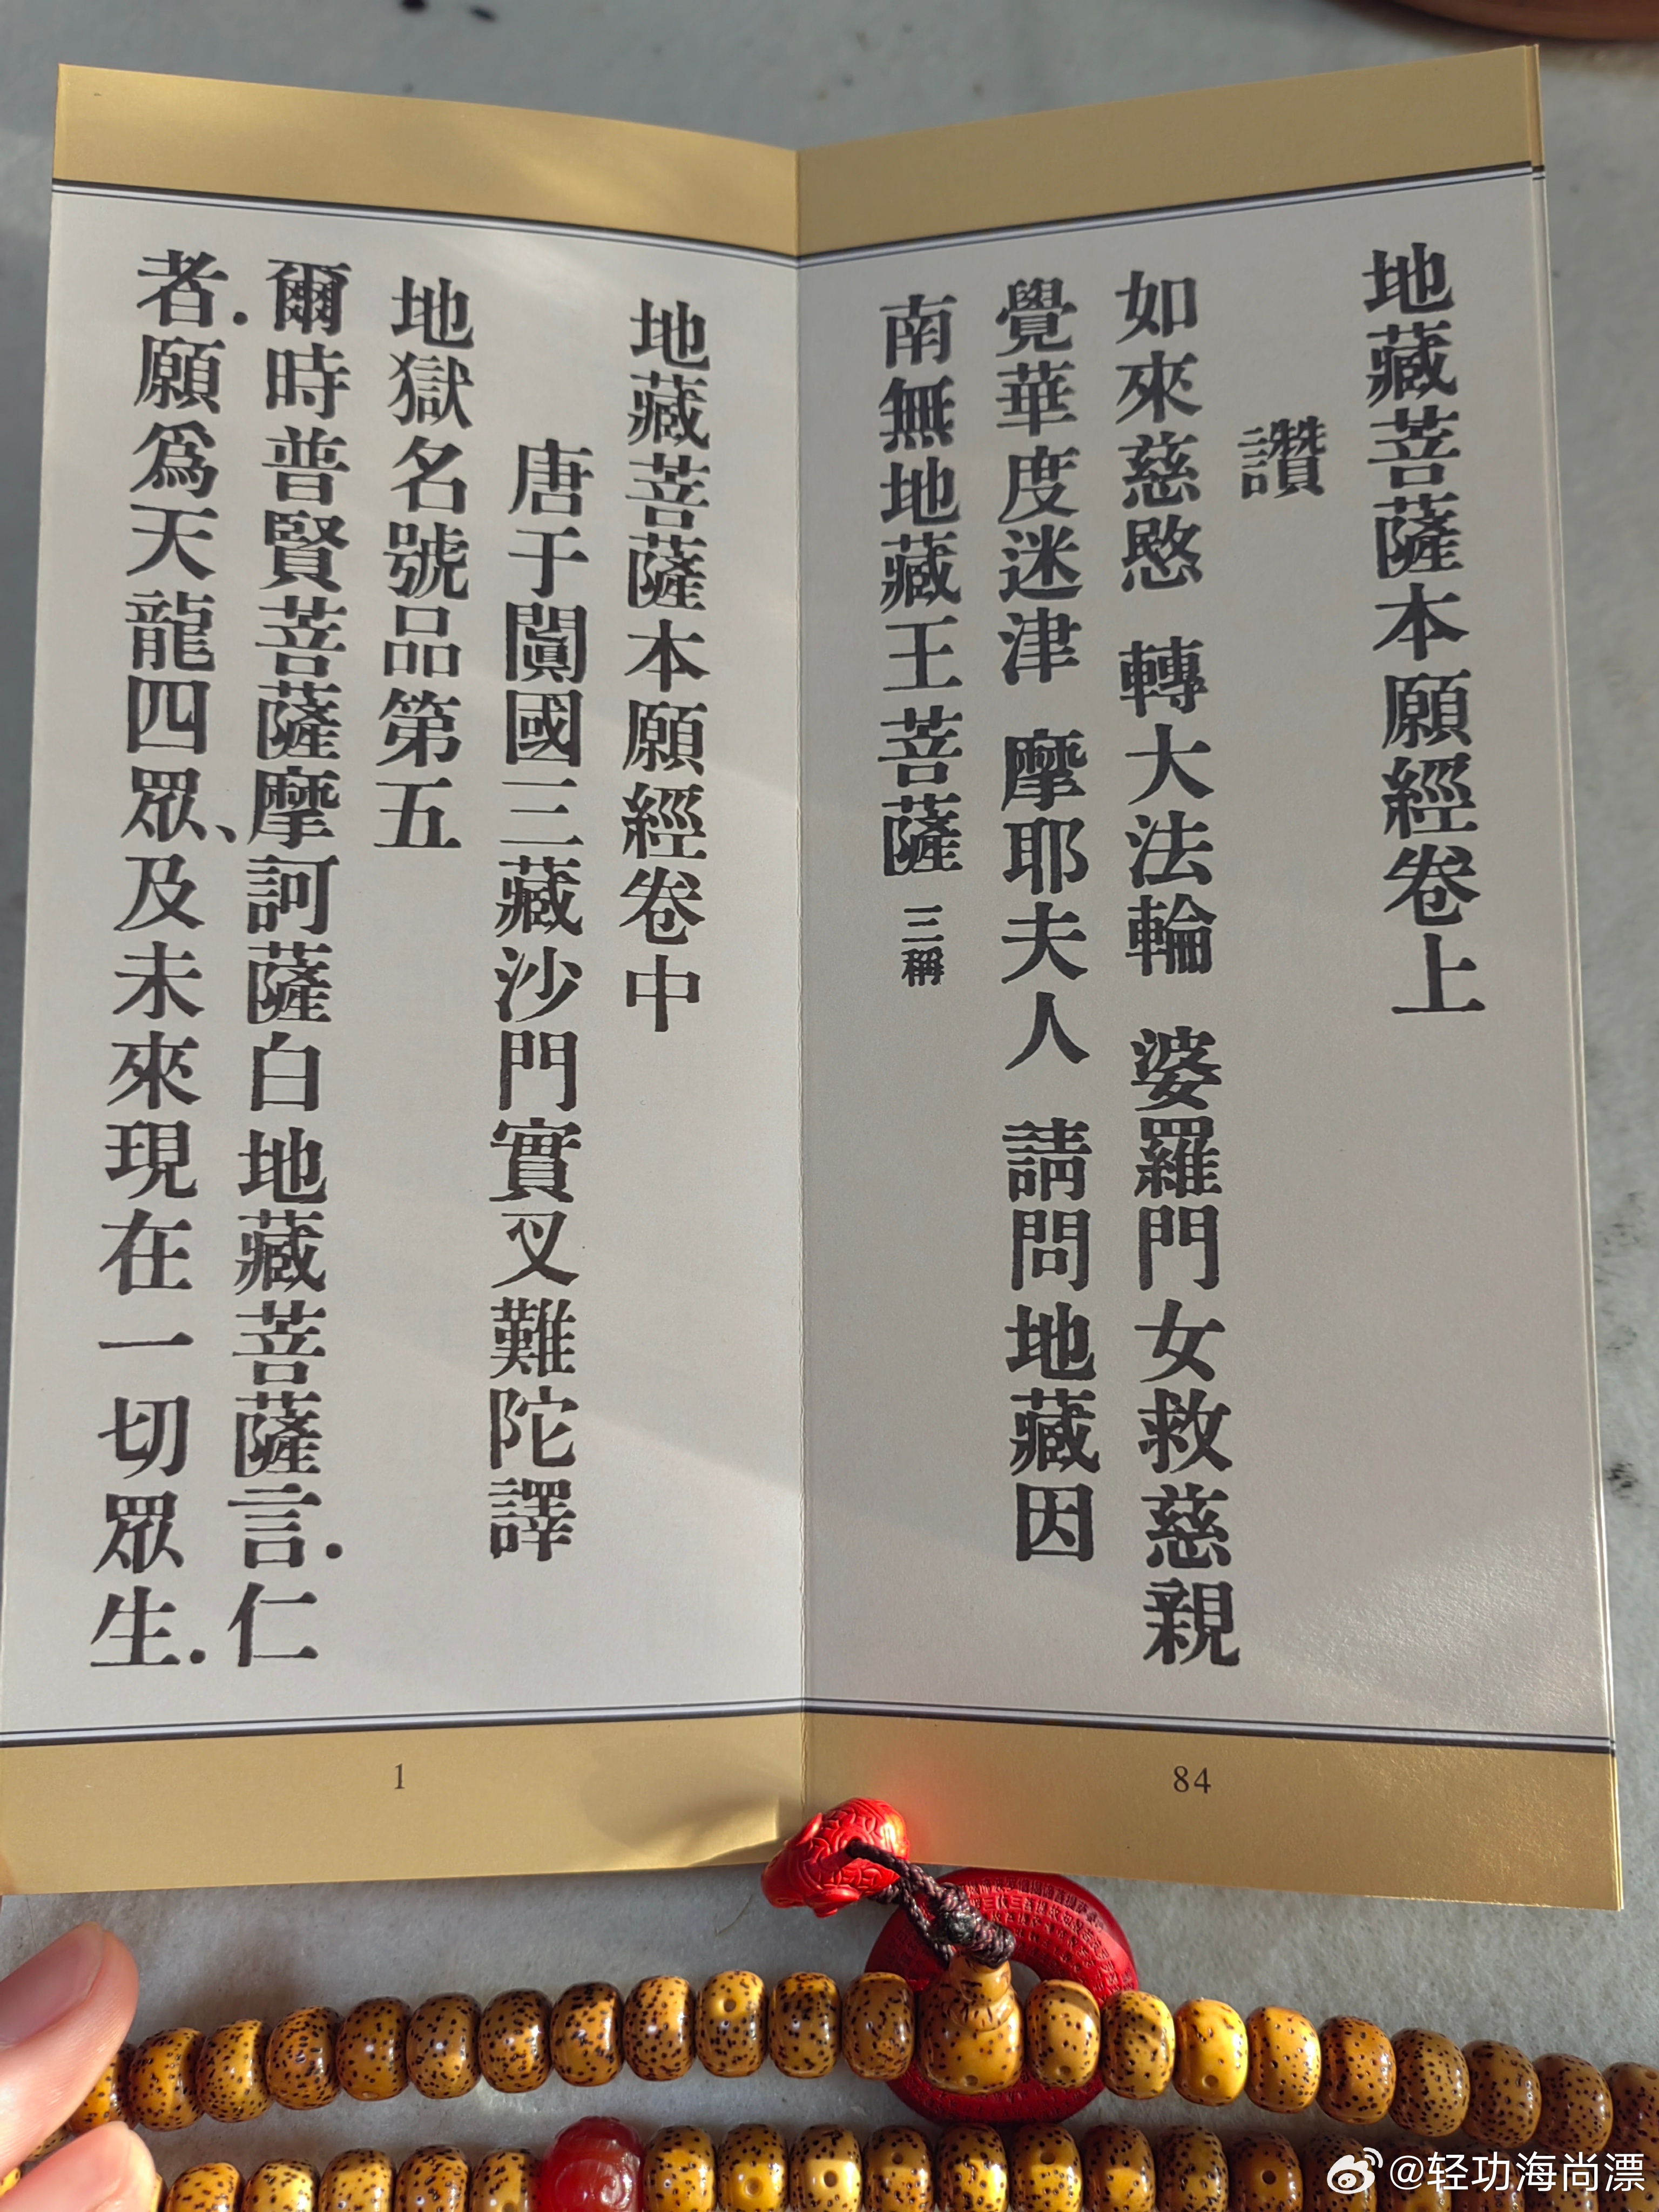 地藏菩薩本願經卷上
讚
如來慈愍 轉大法輪 婆羅門女救慈親
覺華度迷津 摩耶夫人 請問地藏因
南無地藏王菩薩 三稱
84
地藏菩薩本願經卷中
唐于闐國三藏沙門實叉難陀譯
地獄名號品第五
爾時普賢菩薩摩訶薩白地藏菩薩言.仁
者.願為天龍四眾、及未來現在一切眾生.
1
@轻功海尚漂